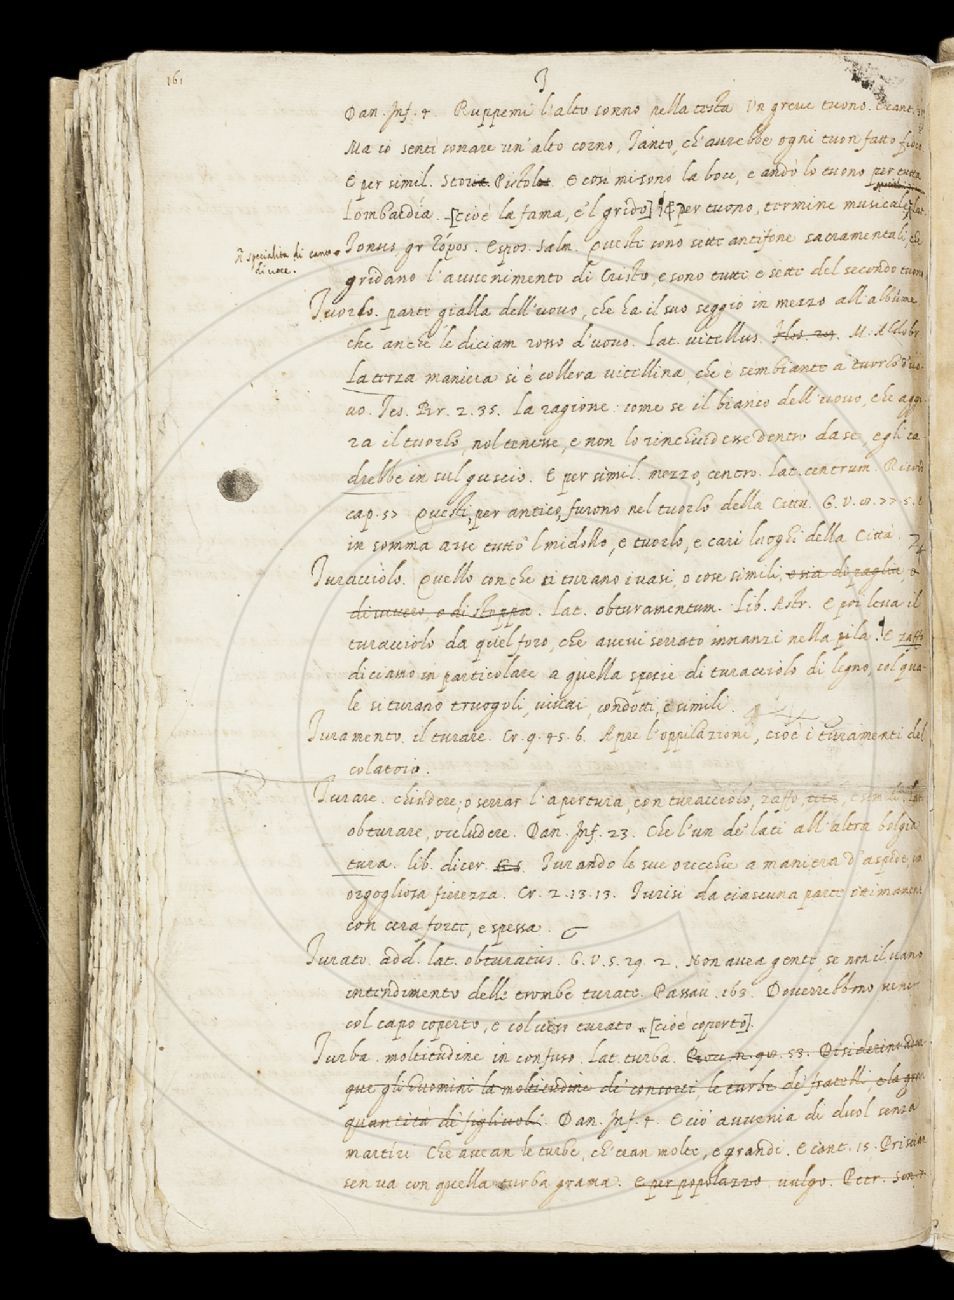 161
T
Dan. Inf. 4. Ruppemi l'alto sonno nella testa Un greve tuono. E cant. 31
Ma io senti' sonare un' alto corno, Tanto, ch' avrebbe ogni tuon fatto fioco
E per simil. Stor. Pistol. E così misono la boce, e andò lo tuono per tutta
Lombardía. [cioè la fama, e 'l grido] per tuono, termine musicale, lat.
R specialità di canto o
di voce.
Tonus, gr. Espos. Salm. Queste sono sette antifone sacramentali, che
gridano l'avvenimento di Cristo, e sono tutte e sette del secondo tuono
Tuorlo. parte gialla dell'uovo, che ha il suo seggio in mezzo all'albume
che anche le diciam rosso d'uovo. Lat. vitellus. M. Aldobr.
La terza maniera si è collera vitellina, che è sembiante a tuorlo d'uo-
vo. Tes. Br. 2. 35. La ragione: come se il bianco dell'uovo, che aggi-
ra il tuorlo, nol tenesse, e non lo rinchiudesse dentro da se, egli ca
drebbe in sul guscio. E per simil. mezzo, centro. Lat. centrum. Ricord
cap. 57 Questi, per antico, furono nel tuorlo della Città. G. V.
in somma arse tutto 'l midollo, e tuorlo, e cari luoghi della Città.
Turacciolo. Quello con che si turano i vasi, o cose simili, o sia di paglia, o
di vinco, o di stoppa. Lat. obturamentum. Lib. Astr. E poi leva il
turacciolo da quel foro, che avevi serrato innanzi nella pila. E zaffo
diciamo in particolare a quella spezie di turacciolo di legno, col qua-
le si turano truogoli, vivai, condotti, e simili.
Turamento. il turare. Cr. 9. 45. 6. Apre l'oppilazioni, cioè i turamenti del
colatoio.
Turare. chiudere, o serrar l'apertura, con turacciolo, zaffo, e simili. Lat.
obturare, occludere. Dan. Inf. 23. Che l'un de' laci all'altra bolgia
tura. lib. dicer. Turando le sue orecchie a maniera d'aspido
orgogliosa fierezza. Cr. 2. 13. 13. Turisi da ciascuna parte
con cera forte, e spessa.
Turato. add. lat. obturatus. G. V. 5. 29. 2. Non avea gente, se non il vano
intendimento delle trombe turate. Passav. 163. Dovrebbono venir
col capo coperto, e col viso turato [cioè coperto].
Turba. moltitudine in confuso. Lat. turba. 53.
que gli huomini la moltitudine de' consorti, le turbe de' fratelli e la gran
quantità di figliuoli. Dan. Inf. 4. E ciò avvenia di duol senza
martíri Che avean le turbe, ch' eran molte, e grandi. E cant. 15. Priscian
sen va con quella turba grama. E per popolazzo vulgo. Petr. Son.